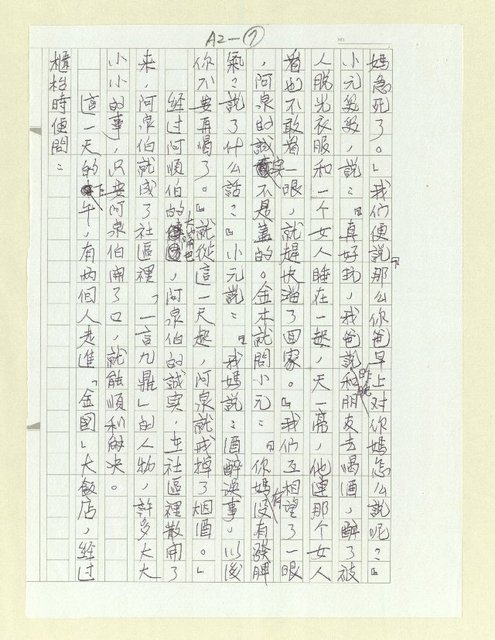 A2-⑦
媽急死了。』我們便說那么你爸早上对你媽怎么說呢?』
小元努努,說:『真好玩,我爸說昨晚和朋友去喝酒,醉了被
人脫光衣服和一个女人睡在一起,天一亮,他連那个女人
看也不敢看一眼,就趕快溜了回家。』我們互相望了一眼
,阿泉的誠实不是蓋的。金木就問小元:『你媽有沒有發脾
氣?說了什么話?』小元說:『我媽說:酒醉誤事,以後
你不要再喝了。』就從這一天起,阿泉就戒掉了烟酒。」
經过阿順伯的大嘴巴,阿泉伯的誠实,在社區裡散開了
來,阿泉伯就成了社區裡「一言九鼎」的人物,許多大大
小小的事,只要阿泉伯開了口,就能順利解决。
這一天的下午,有兩個人走進「金國」大飯店,經过
櫃枱時便問: